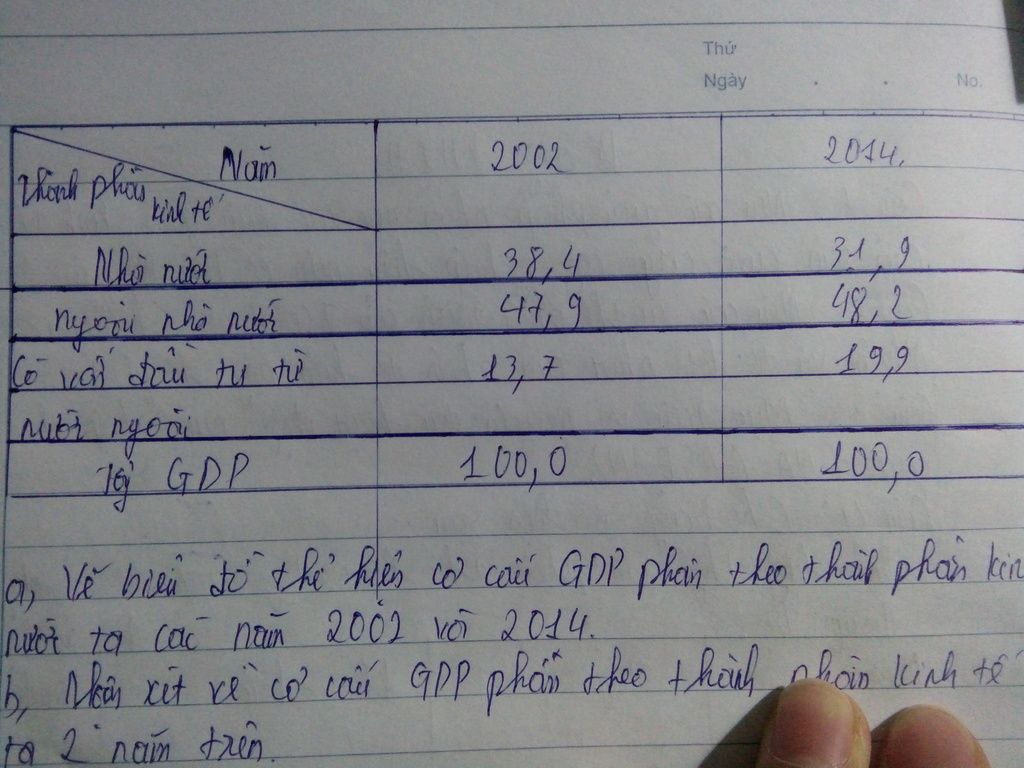 Thứ
Ngày . . No.
Năm 2002 2014.
Thành phần
kinh tế
Nhà nước 38,4 31,9
ngoài nhà nước 47,9 48,2
Có vốn đầu tư từ 13,7 19,9
nước ngoài
GDP 100,0 100,0
a, Vẽ biểu đồ thể hiện cơ cấu GDP phân theo thành phần kin
nước ta các năm 2002 và 2014.
b, Nhận xét về cơ cấu GDP phân theo thành phần kinh tế
ta 2 năm trên.